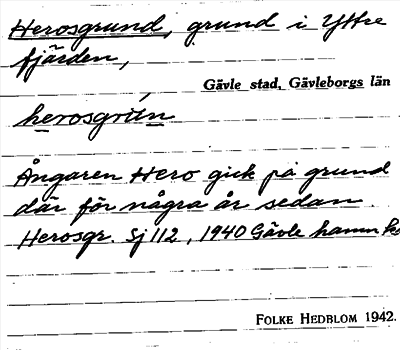 Herosgrund, grund i Yttre
fjärden,
Gävle stad, Gävleborgs län
herosgrùn
Ångaren Hero gick på grund
där för några år sedan.
Herosgr. Sj 112, 1940 Gävle hamn
FOLKE HEDBLOM 1942.